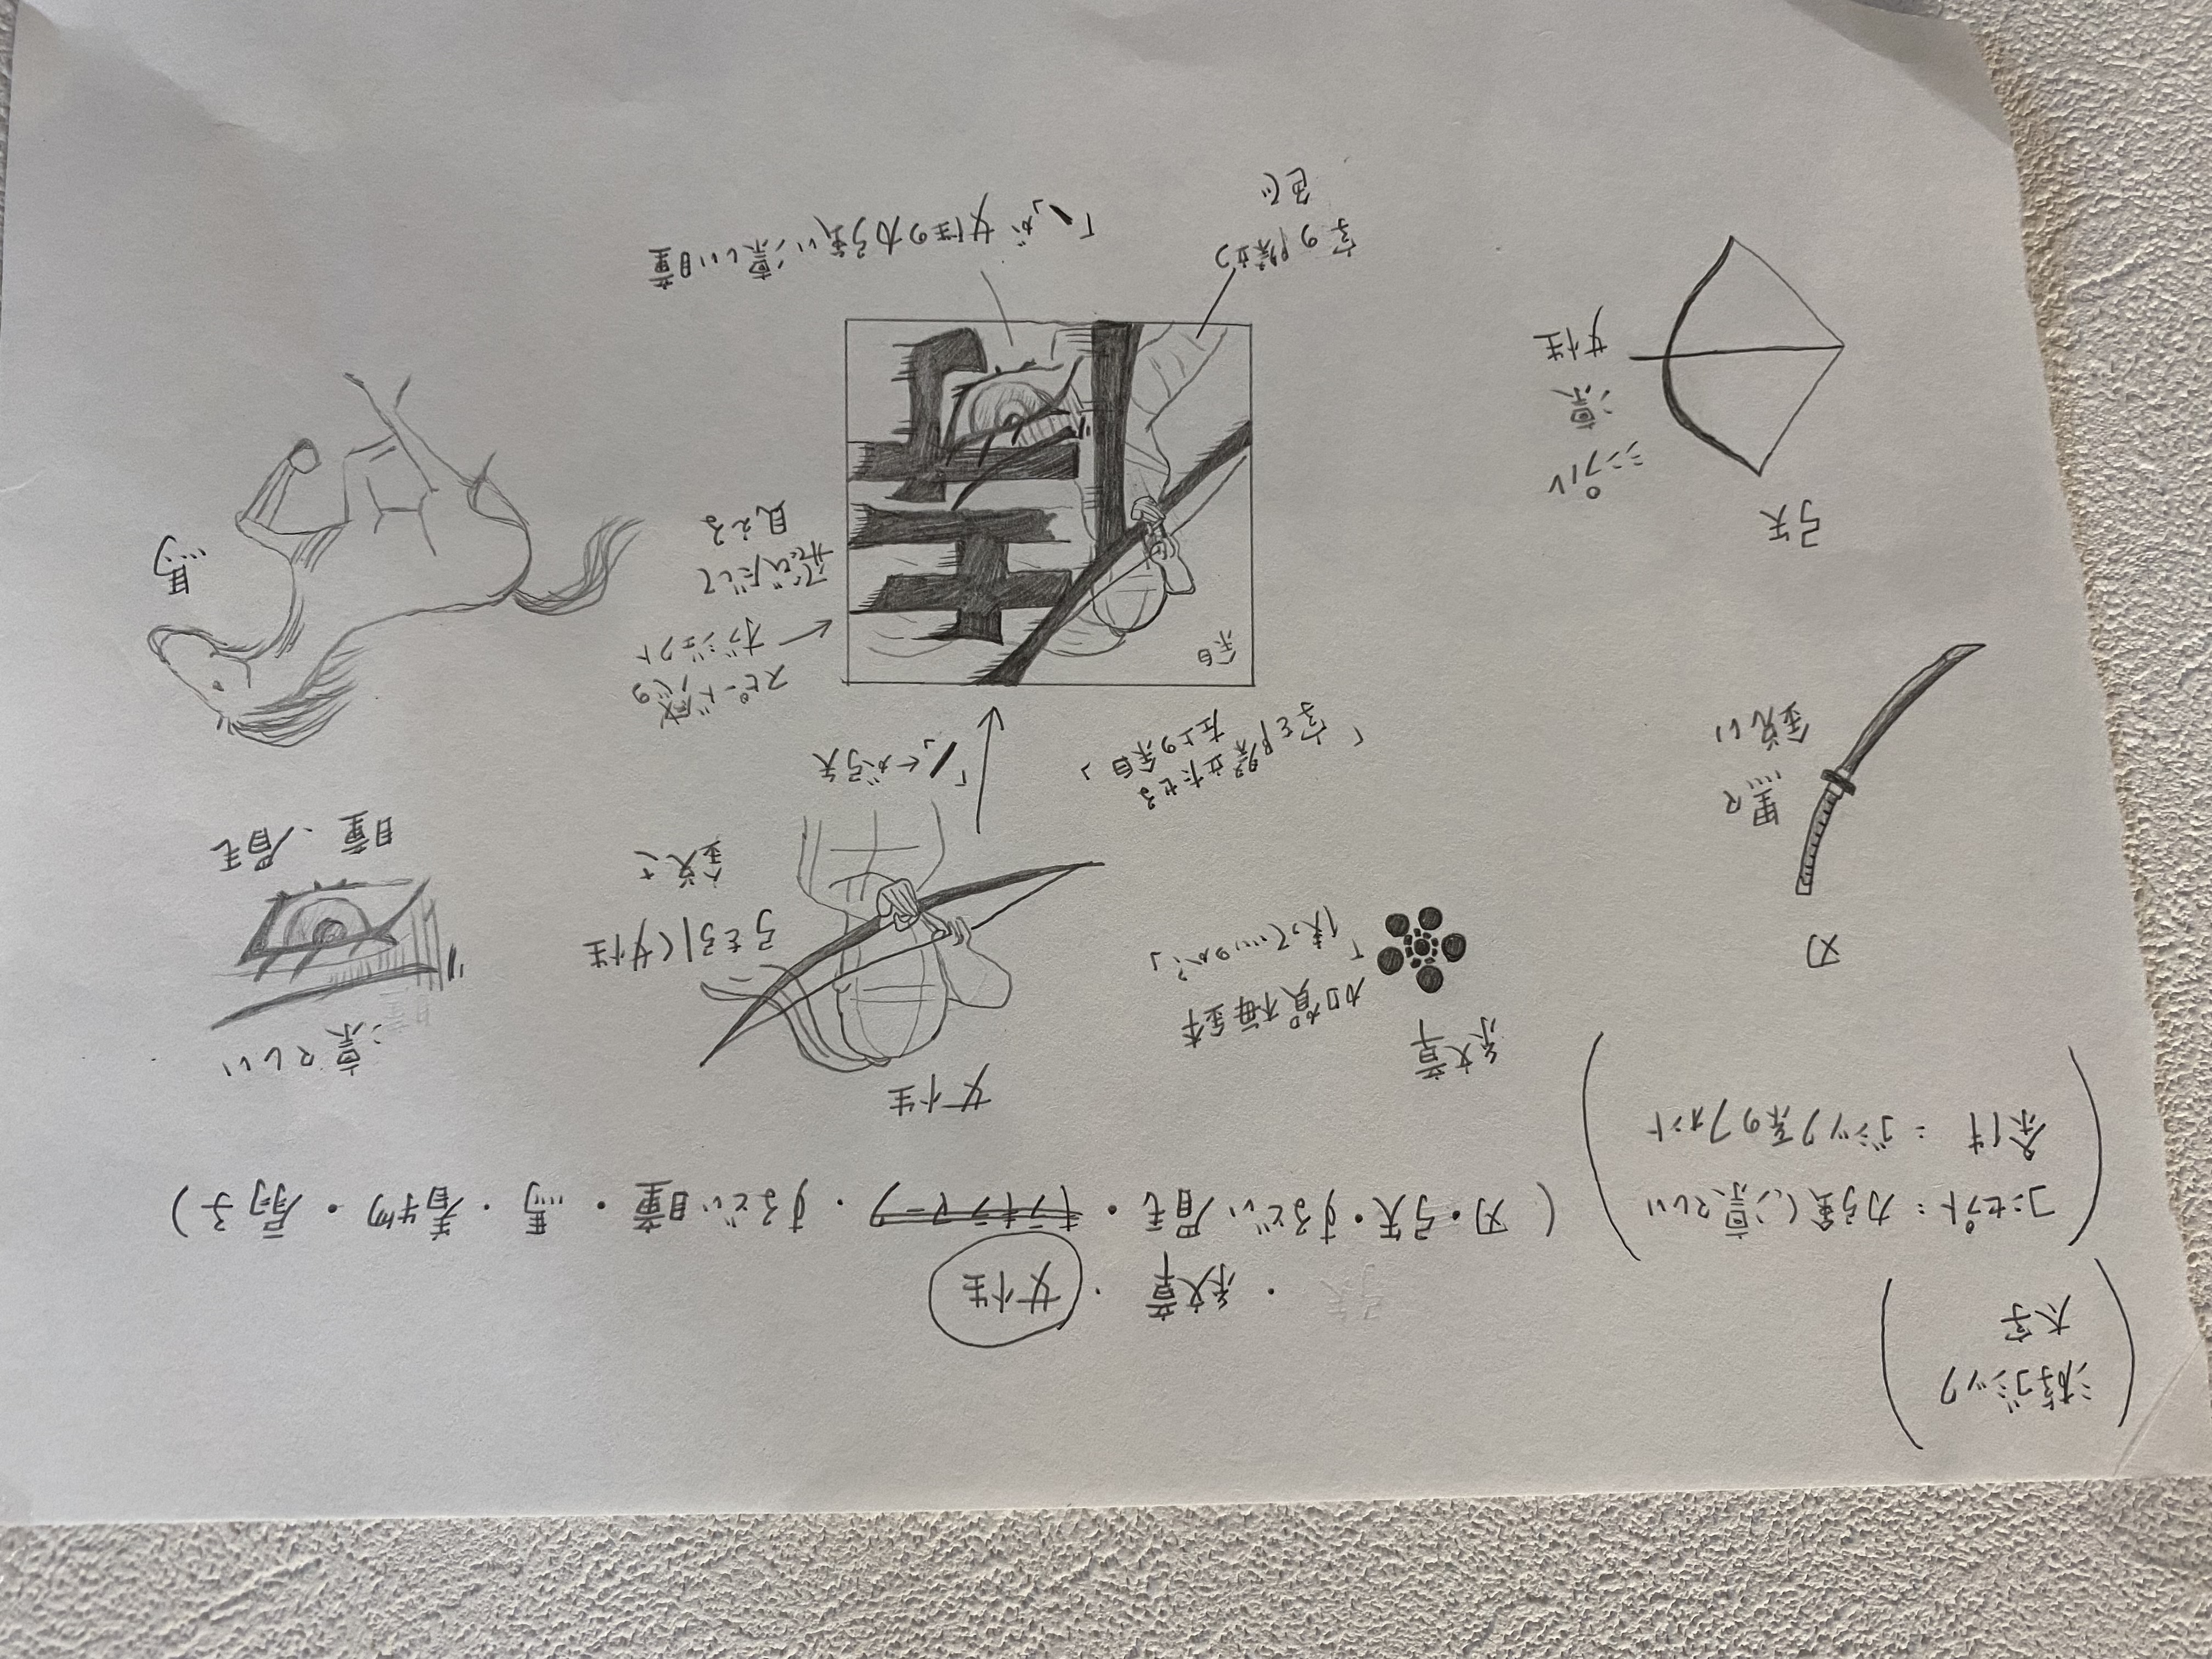 游ゴシック
太字
・紋章・女性
コンセプト：力強く、凛々しい
条件：ゴシック系のフォント
(刃・弓矢・するどい眉毛・キラキラマーク・するどい瞳・馬・着物・扇子)
紋章
加賀梅鉢
「使っていいのか？」
女性
弓を引く女性
鋭さ
凛々しい
瞳、眉毛
刃
黒々
鋭い
「字を際立たせる
左上の余白」
「／」←が弓矢
余白
侍
スピード感の
オブジェクト
飛びだして
見える
馬
弓矢
シンプル
凛
女性
字の際立つ
色で
「＼」が女性の力強い凛しい瞳